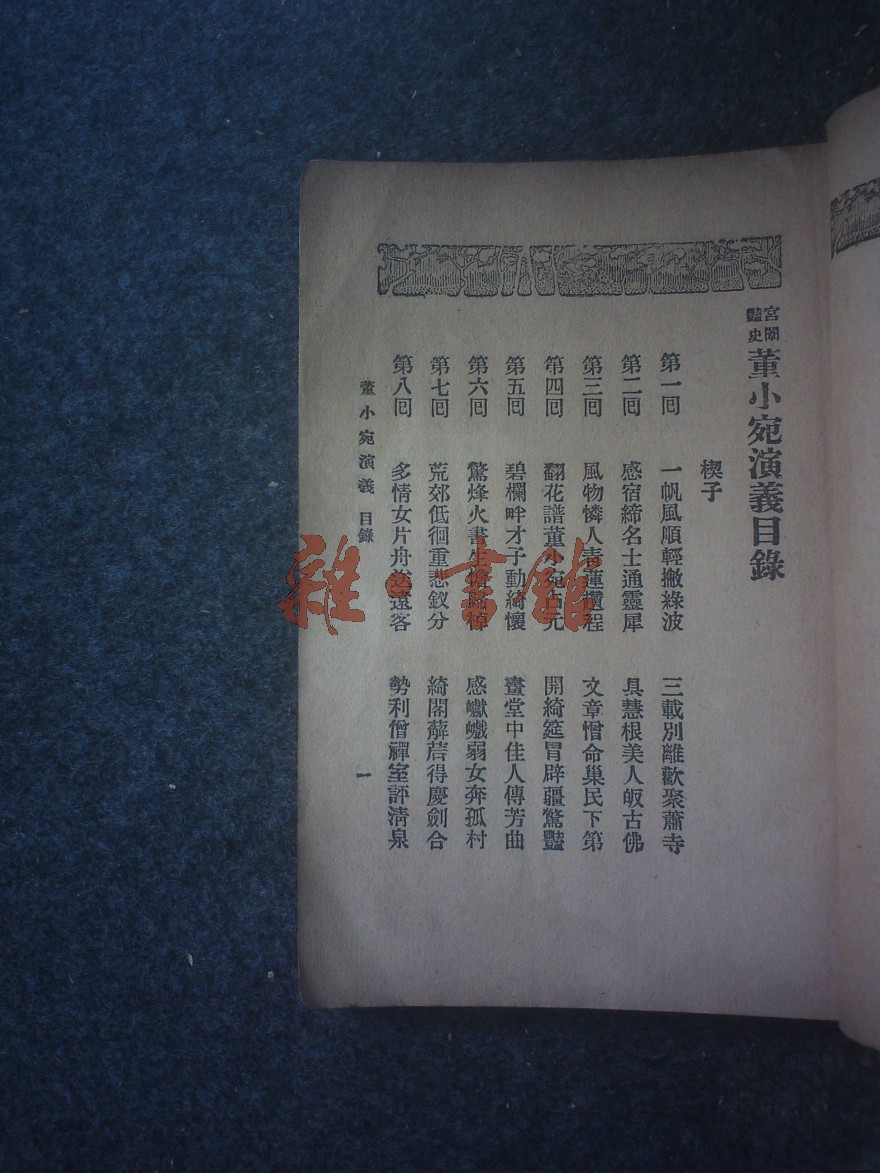 宮闈豔史
董小宛演義目錄
楔子
第一回 一帆風順輕撇綠波 三載別離歡聚蕭寺
第二回 感宿締名士通靈犀 具慧根美人皈古佛
第三回 風物憐人青蓮 程 文章憎命巢民下第
第四回 翻花譜董小宛占元 開綺筵冒辟疆驚豔
第五回 碧欄畔才子動綺懷 畫堂中佳人傳芳曲
第六回 驚烽火書生 歸棹 感巇弱女奔孤村
第七回 荒郊低徊重悲釵分 綺閣 得慶劍合
第八回 多情女片舟送遠客 勢利僧禪室評清泉
董小宛演義 目錄
一
雜·書館